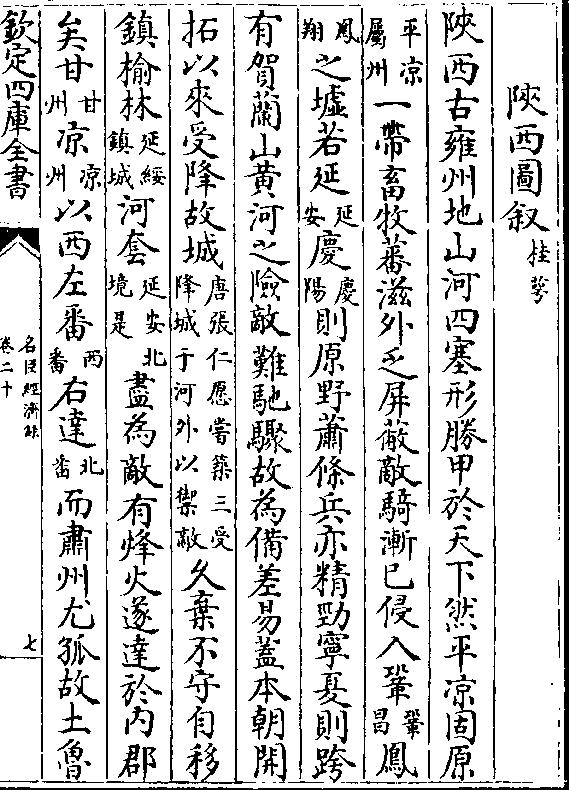 陝西圖叙桂萼
陝西古雍州地山河四塞形勝甲於天下然平凉固原
平凉屬州一帶畜牧蕃滋外乏屏蔽敵騎漸已侵入鞏鞏昌鳳
鳳翔之墟若延延安慶慶陽則原野蕭條兵亦精勁寧夏則跨
有賀蘭山黃河之險敵難馳驟故為備差易蓋本朝開
拓以來受降故城唐張仁愿嘗築三受降城于河外以禦敵久棄不守自移
鎮榆林延綏鎮城河套延安北境是盡為敵有烽火遂達於内郡
矣甘甘州凉凉州以西左番西番右達北畨而肅州尤孤故土魯
欽定四庫全書
名臣經濟錄
卷二十
七